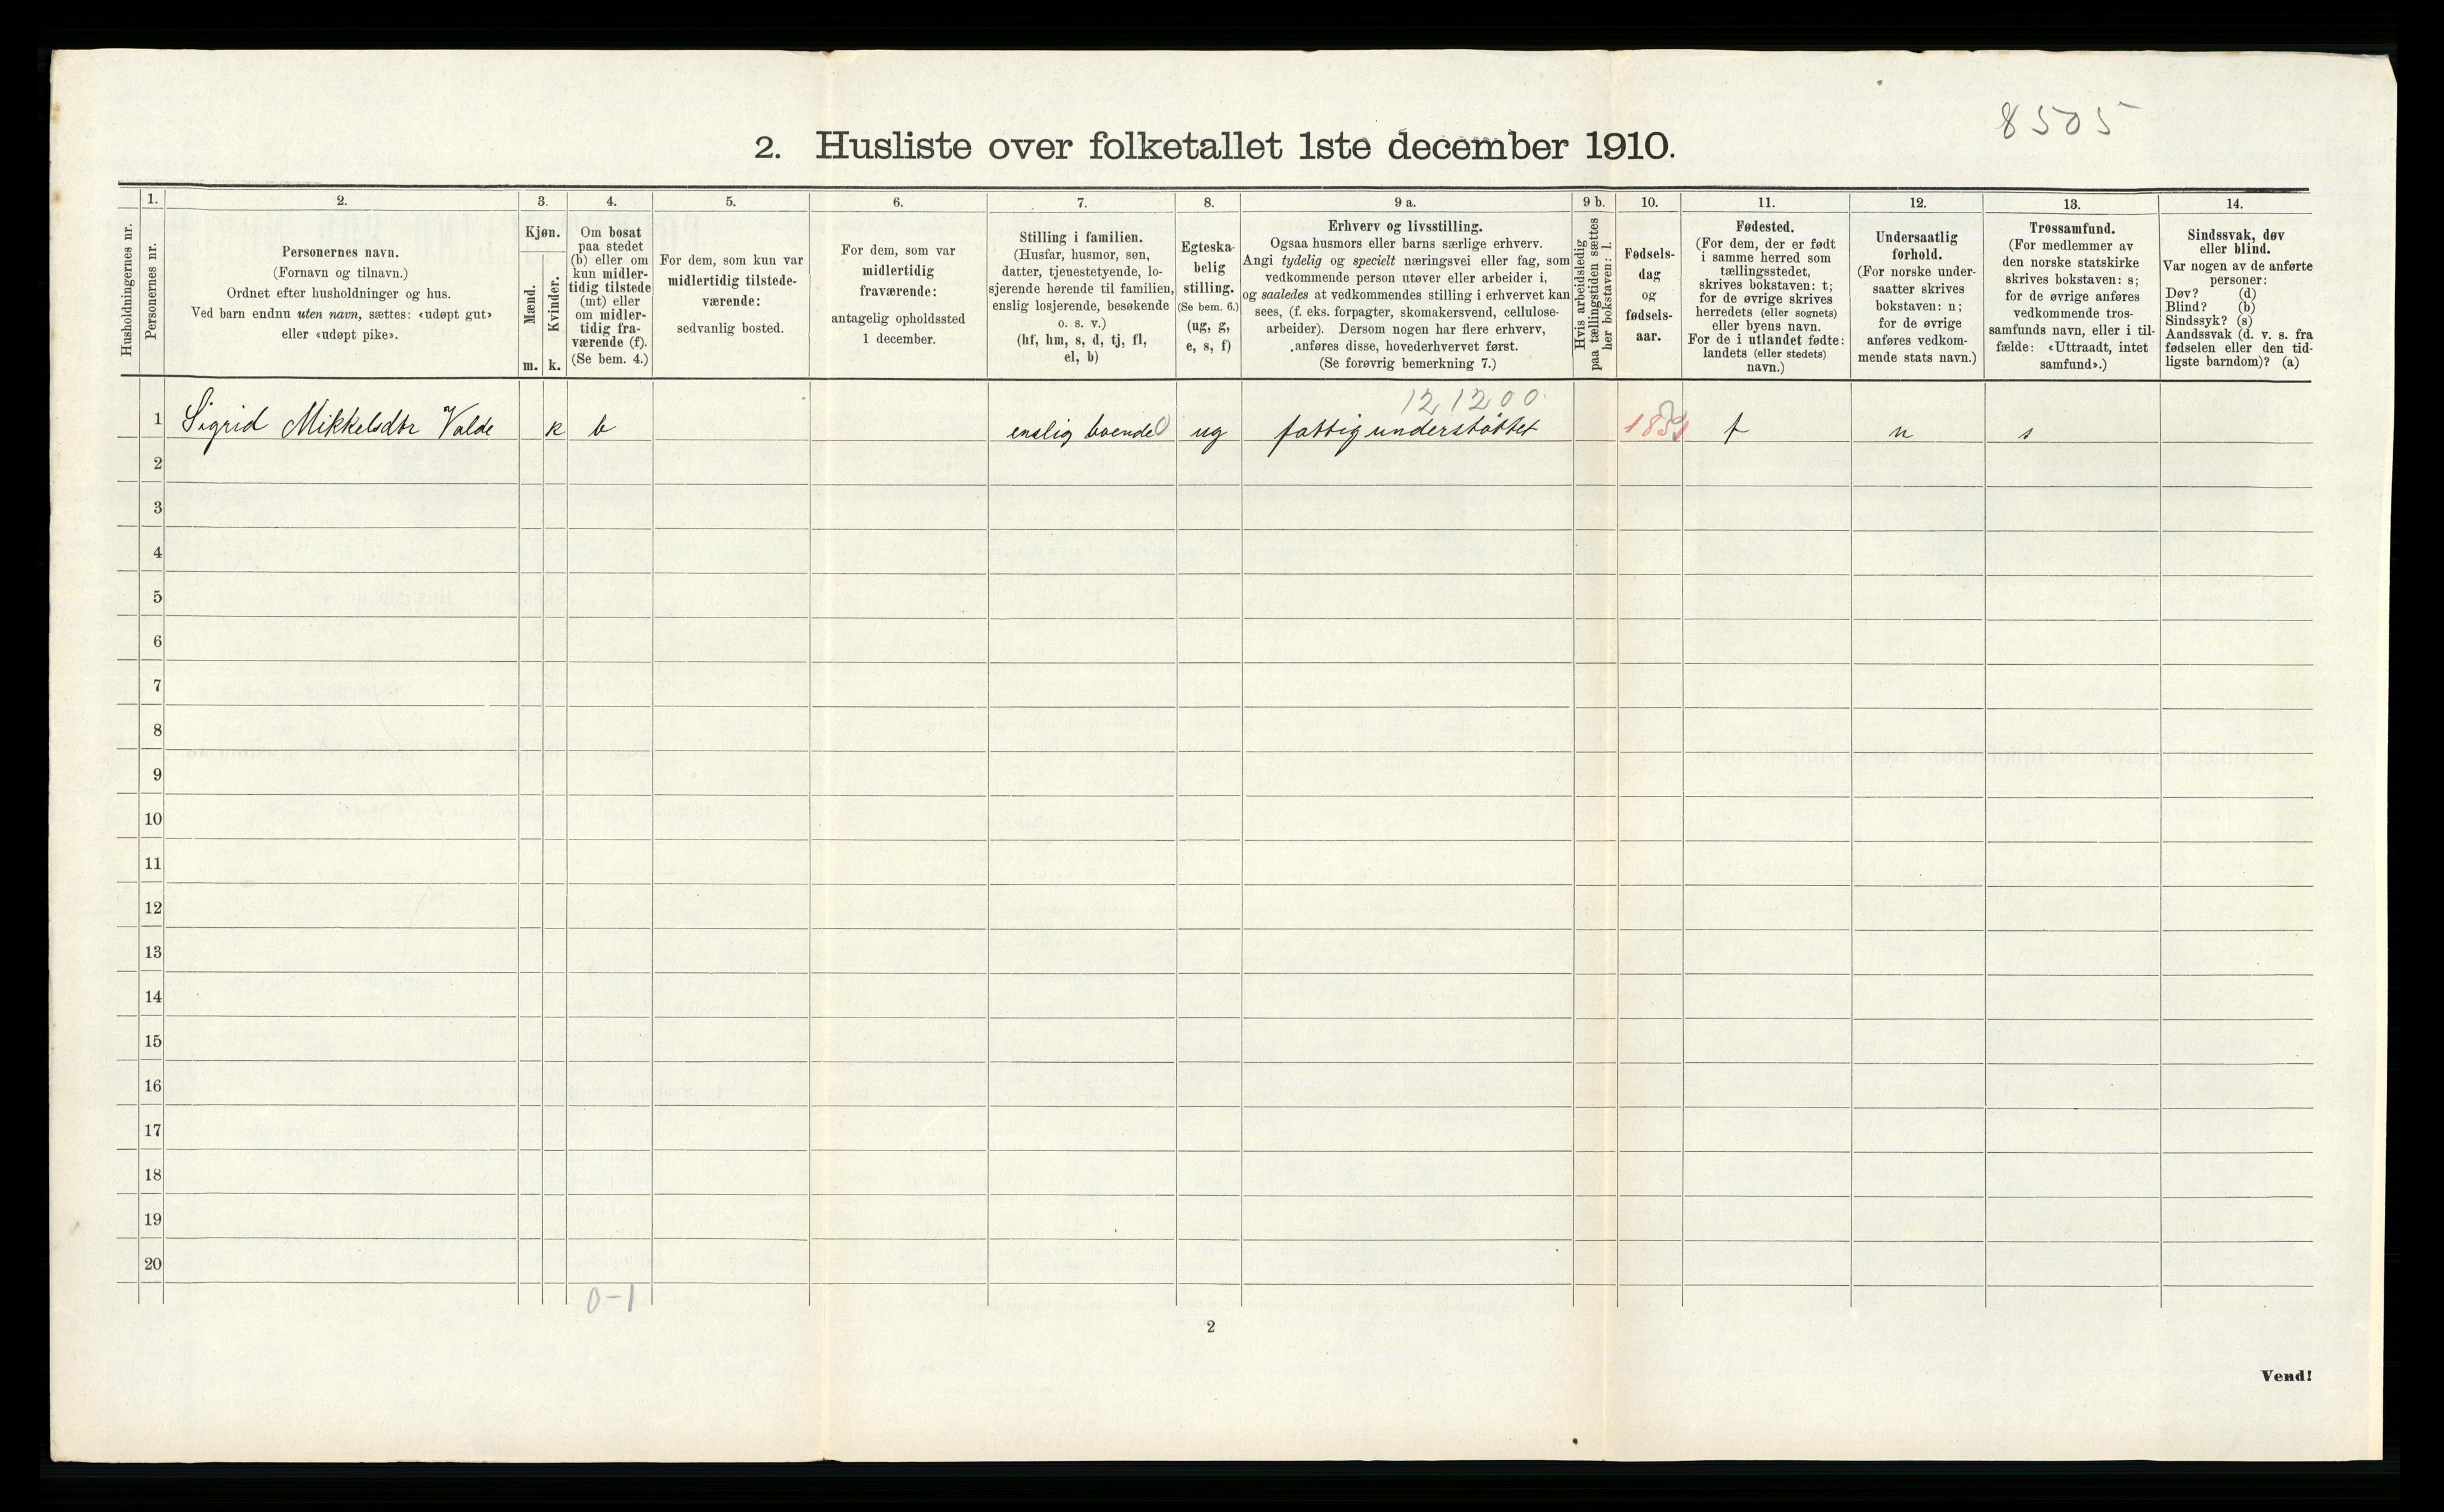 8505
2. Husliste over folketallet 1ste december 1910.
Husholdningernes nr.
1.
Personernes nr.
2.
Personernes navn.
(Fornavn og tilnavn.)
Ordnet efter husholdninger og hus.
Ved barn endnu uten navn, sættes: «udøpt gut»
eller «udøpt pike».
3.
Kjøn.
Mænd.
Kvinder.
m. k.
4.
Om bosat
paa stedet
(b) eller om
kun midler-
tidig tilstede
(mt) eller
om midler-
tidig fra-
værende (f).
(Se bem. 4.)
5.
For dem, som kun var
midlertidig tilstede-
værende:
sedvanlig bosted.
6.
For dem, som var
midlertidig
fraværende:
antagelig opholdssted
1 december.
7.
Stilling i familien.
(Husfar, husmor, søn,
datter, tjenestetyende, lo-
sjerende hørende til familien,
enslig losjerende, besøkende
o. s. v.)
(hf, hm, s, d, tj, fl,
el, b)
8.
Egteska-
belig
stilling.
(Se bem. 6.)
(ug, g,
e, s, f)
9 a.
Erhverv og livsstilling.
Ogsaa husmors eller barns særlige erhverv.
Angi tydelig og specielt næringsvei eller fag, som
vedkommende person utøver eller arbeider i,
og saaledes at vedkommendes stilling i erhvervet kan
sees, (f. eks. forpagter, skomakersvend, cellulose-
arbeider). Dersom nogen har flere erhverv,
anføres disse, hovederhvervet først.
(Se forøvrig bemerkning 7.)
9 b.
Hvis arbeidsledig
paa tællingstiden sættes
her bokstaven: l.
10.
Fødsels-
dag
og
fødsels-
aar.
11.
Fødested.
(For dem, der er født
i samme herred som
tællingsstedet,
skrives bokstaven: t;
for de øvrige skrives
herredets (eller sognets)
eller byens navn.
For de i utlandet fødte:
landets (eller stedets)
navn.)
12.
Undersaatlig
forhold.
(For norske under-
saatter skrives
bokstaven: n;
for de øvrige
anføres vedkom-
mende stats navn.)
13.
Trossamfund.
(For medlemmer av
den norske statskirke
skrives bokstaven: s;
for de øvrige anføres
vedkommende tros-
samfunds navn, eller i til-
fælde: «Uttraadt, intet
samfund».)
14.
Sindssvak, døv
eller blind.
Var nogen av de anførte
personer:
Døv? (d)
Blind? (b)
Sindssyk? (s)
Aandssvak (d. v. s. fra
fødselen eller den tid-
ligste barndom)? (a)
12,1200
1 Sigrid Mikkelsdtr Valde k b enslig boende 0 ug fattigunderstøttet t n s
2
3
4
5
6
7
8
9
10
11
12
13
14
15
16
17
18
19
20
0-1
2
Vend!